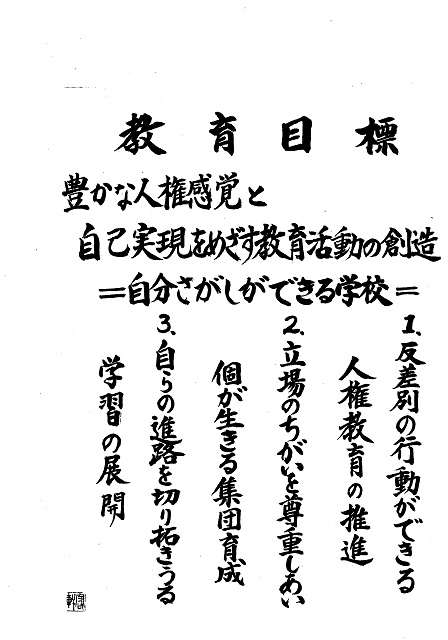 教育目標
豊かな人権感覚と
自己実現をめざす教育活動の創造
=自分さがしができる学校=
1、反差別の行動ができる
人権教育の推進
2、立場のちがいを尊重しあい
個が生きる集団育成
3、自らの進路を切り拓きうる
学習の展開